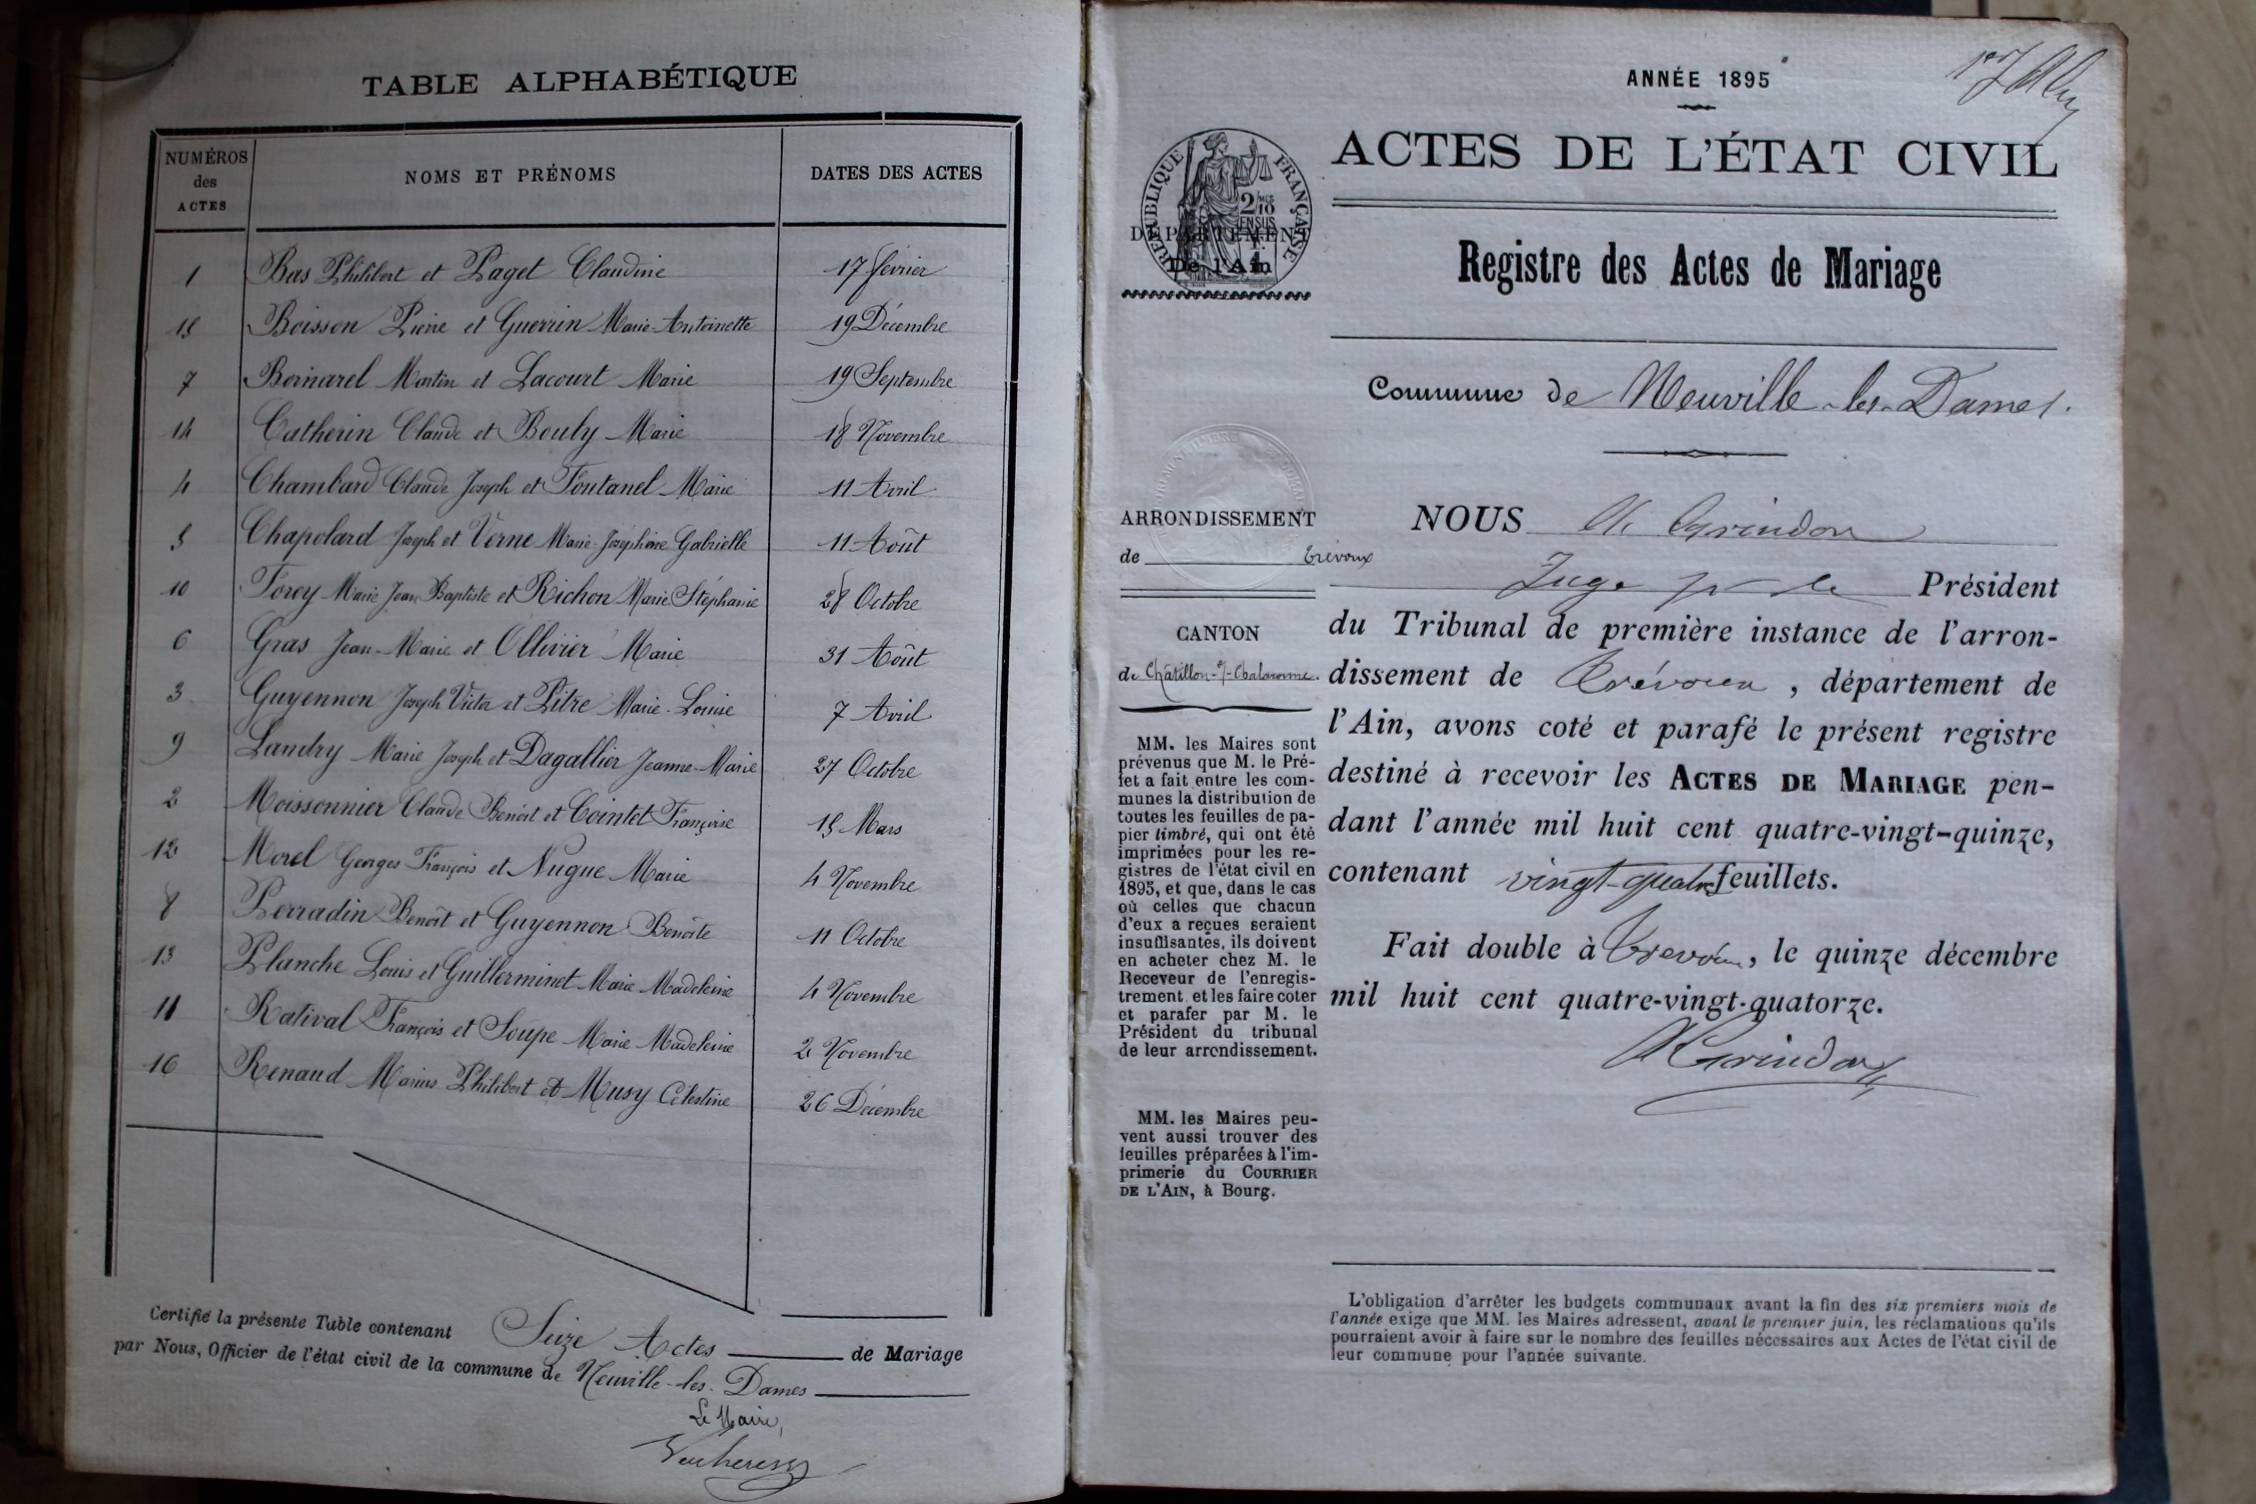 TABLE ALPHABÉTIQUE
NUMÉROS des ACTES
NOMS ET PRÉNOMS
DATES DES ACTES
1 Bas Philibert et Paget Claudine 17 février
15 Boisson Pierre et Guerrin Marie-Antoinette 19 Décembre
7 Martin et Lacourt Marie 19 Septembre
14 Catherin Claude et Bouly Marie 18 Novembre
4 Chambard Claude Joseph et Fontanel Marie 11 Avril
5 Chapolard Joseph et Verne Marie-Joséphine Gabrielle 11 Août
10 Forey Marie Jean Baptiste et Richon Marie Stéphanie 28 Octobre
6 Gras Jean-Marie et Ollivier Marie 31 Août
3 Guyennon Joseph Victor et Pitre Marie-Louise 7 Avril
9 Landry Marie Joseph et Dagallier Jeanne-Marie 27 Octobre
2 Moissonnier Claude Benoit et Cointet Françoise 15 Mars
12 Morel Georges François et Nugue Marie 4 Novembre
8 Perradin Benoît et Guyennon Benoîte 11 Octobre
13 Planche Louis et Guillerminet Marie Madeleine 4 Novembre
11 Ratival François et Soupe Marie Madeleine 2 Novembre
16 Renaud Marius Philibert et Musy Célestine 26 Décembre
Certifié la présente Table contenant Seize Actes de Mariage
par Nous, Officier de l'état civil de la commune de Neuville-les-Dames
Le Maire,
ANNÉE 1895
ACTES DE L'ÉTAT CIVIL
RÉPUBLIQUE FRANÇAISE
2/10 EN SUS
DÉPARTEMENT
De l'Ain
Registre des Actes de Mariage
Commune de Neuville-les-Dames.
ARRONDISSEMENT
de Trévoux
CANTON
de Châtillon-s/-Chalaronne.
MM. les Maires sont
prévenus que M. le Pré-
fet a fait entre les com-
munes la distribution de
toutes les feuilles de pa-
pier timbré, qui ont été
imprimées pour les re-
gistres de l'état civil en
1895, et que, dans le cas
où celles que chacun
d'eux a reçues seraient
insuffisantes, ils doivent
en acheter chez M. le
Receveur de l'enregis-
trement et les faire coter
et parafer par M. le
Président du tribunal
de leur arrondissement.
MM. les Maires peu-
vent aussi trouver des
feuilles préparées à l'im-
primerie du COURRIER
DE L'AIN, à Bourg.
NOUS
Juge pr le Président
du Tribunal de première instance de l'arron-
dissement de Trévoux, département de
l'Ain, avons coté et parafé le présent registre
destiné à recevoir les ACTES DE MARIAGE pen-
dant l'année mil huit cent quatre-vingt-quinze,
contenant vingt-quatre feuillets.
Fait double à Trévoux, le quinze décembre
mil huit cent quatre-vingt-quatorze.
L'obligation d'arrêter les budgets communaux avant la fin des six premiers mois de
l'année exige que MM. les Maires adressent, avant le premier juin, les réclamations qu'ils
pourraient avoir à faire sur le nombre des feuilles nécessaires aux Actes de l'état civil de
leur commune pour l'année suivante.